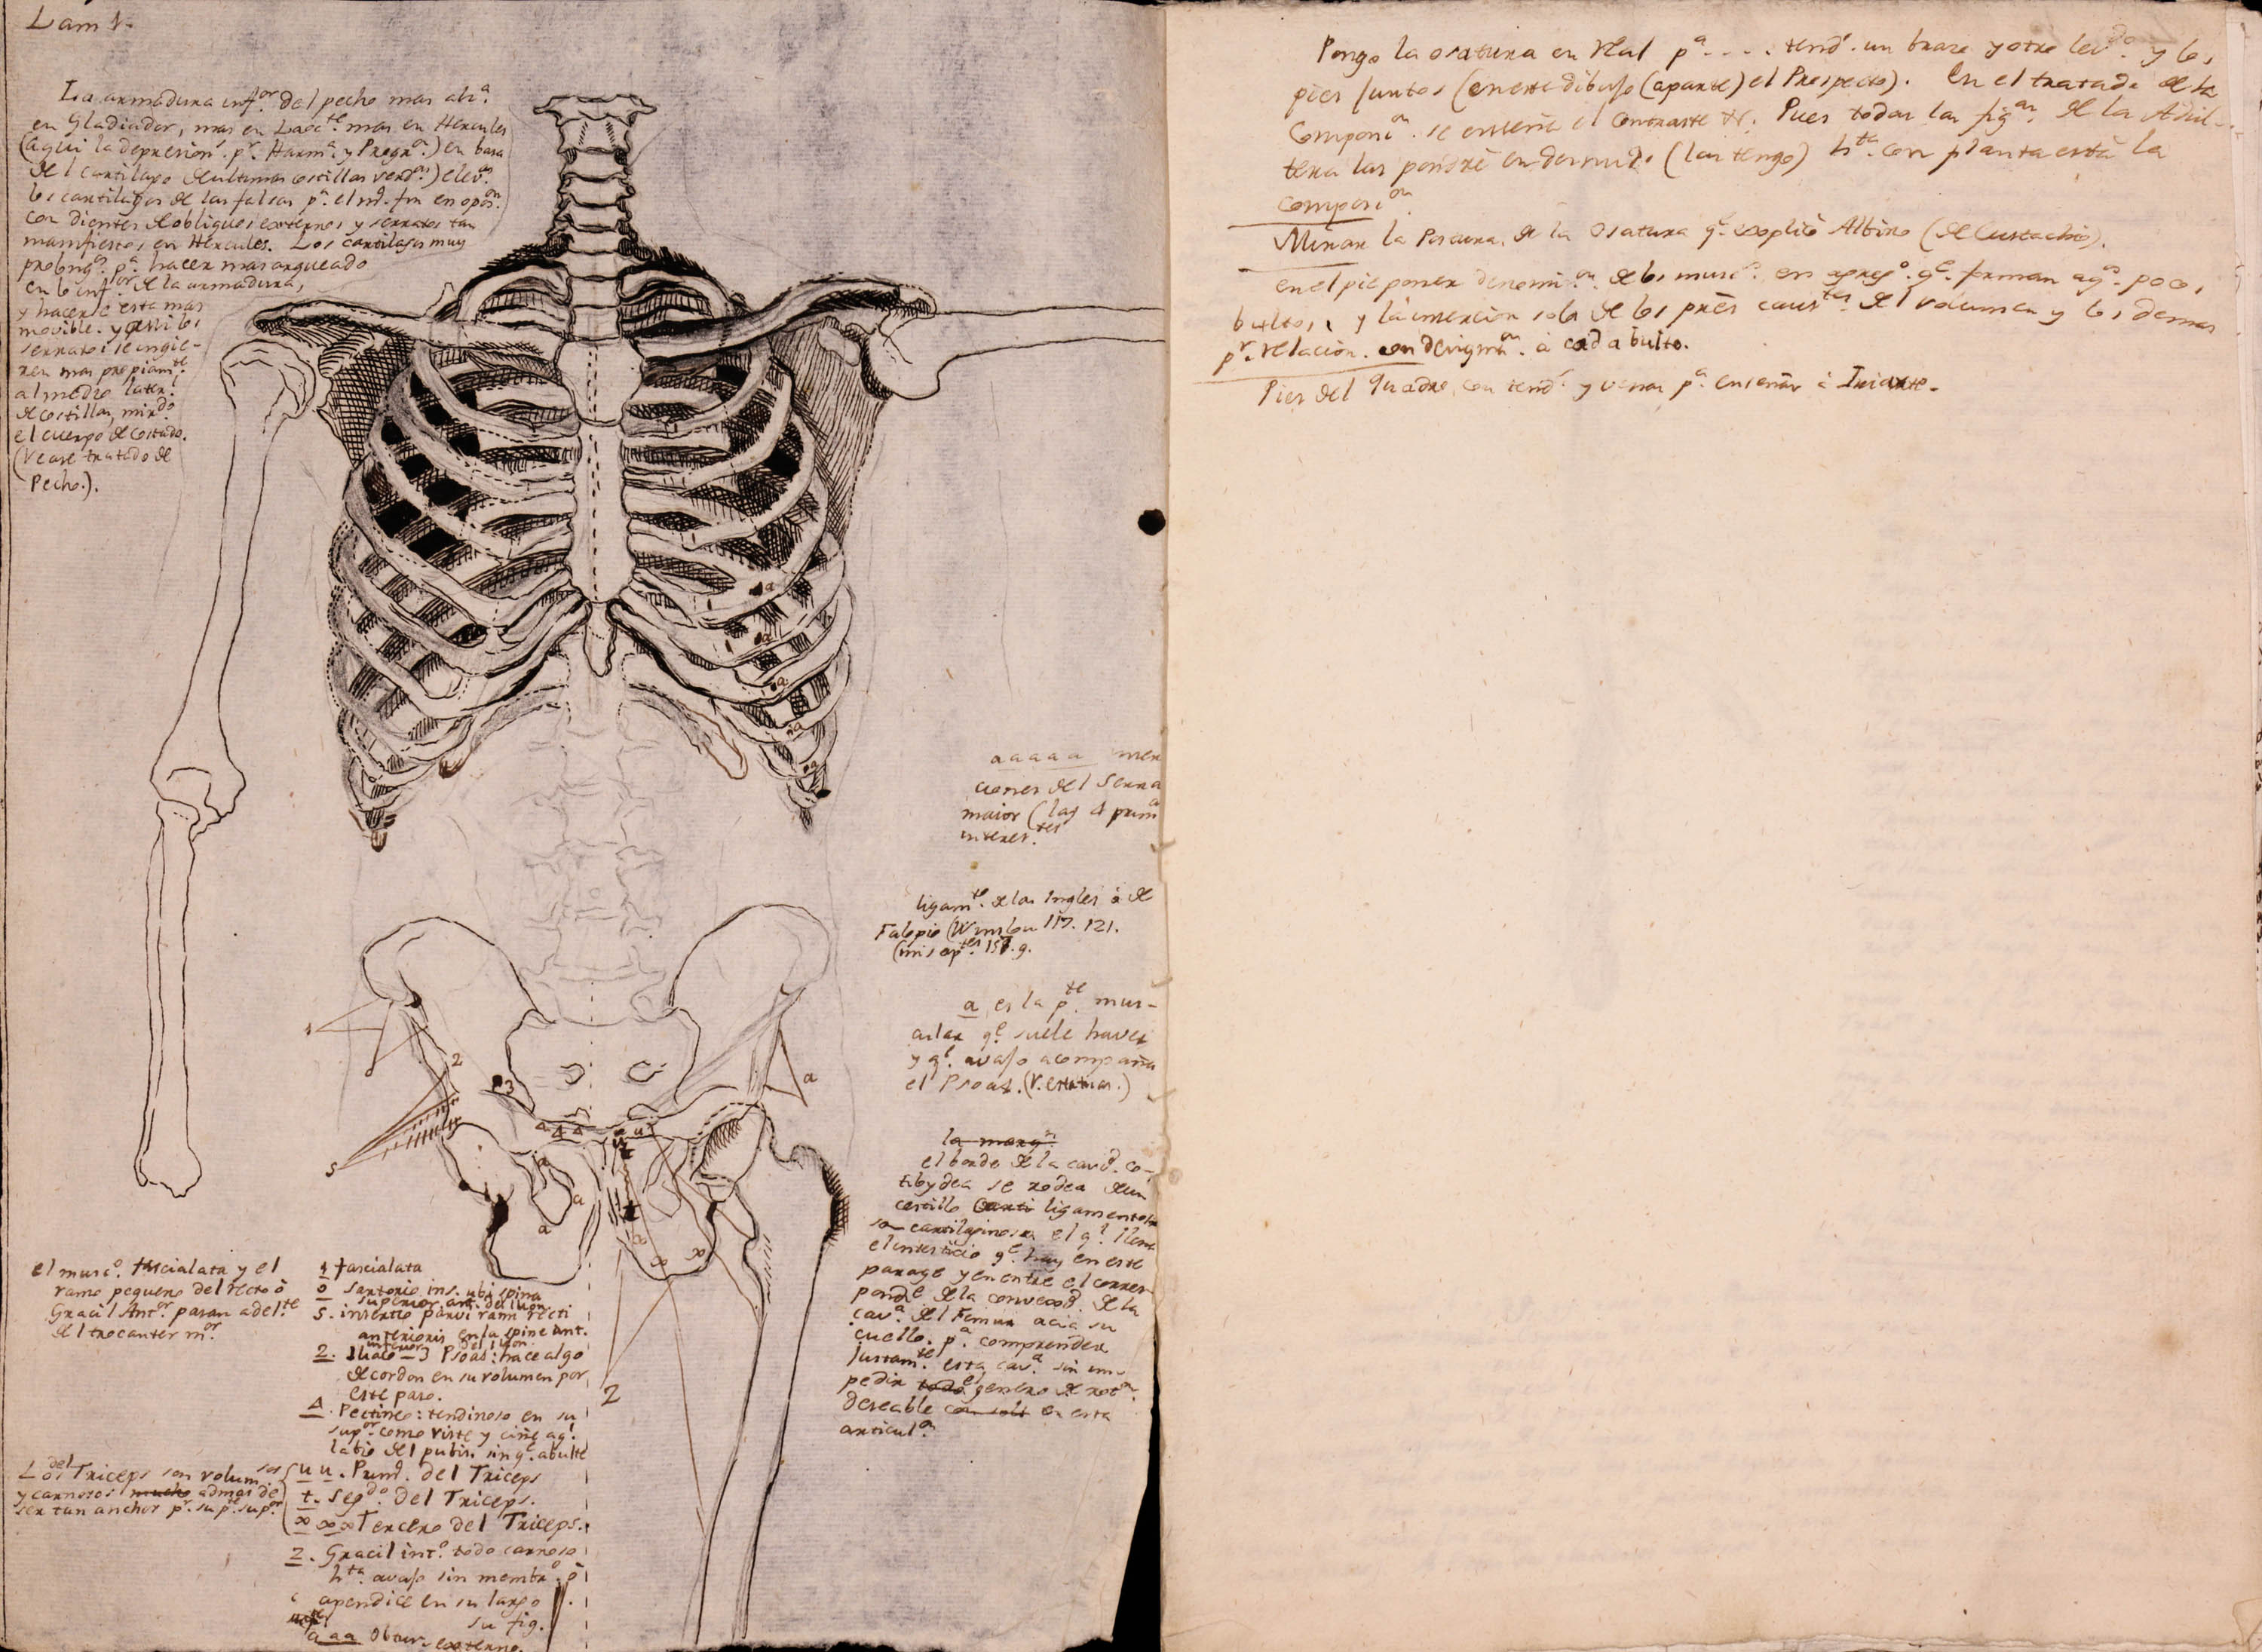 Lam 1.
La armadura inf.or del pecho mas ab.a
en Gladiador, mas en Laoc.te mas en Hercules
(aqui la depresion. p.r Harm.a y Pregn.n) en basa
de l cartilago de ultimas costillas verd.as) elev.
los cartilagos de las falsas p.a el md. fin en opos.on
con dientes de obliquos externos y serratos tan
manifiestos en Hercules. Los cartilagos muy
prolong.s p.a hacer mas arqueado
en lo inf.or de la armadura,
y hacer è esta mas
movible. y assi los
serratos se ingie-
ren mas propiam.te
al medio later.l
de costillas, mir.do
el cuerpo de costado.
(Vease tratado de
Pecho.).
a a a a a
ciones del Serra
maior (las 4 prim
interes.tes
ligam.te de las Ingles ò de
Falopio (Winslou 117. 121.
(mis ap.tes 157. 9.
a es la p.te mus-
cular q.e suele haver
y q.e avajo acompaña
el Psoas. (V. estatuas.)
la marg.n
el borde de la cavd. co-
tiloydea se rodea de un
cercillo ligamentoso
cartilaginoso el q.l llena
el intersticio q.e hay en este
parage y en entre el corres-
ponde de la convexd. de la
cav.a del Femur acia su
cuello. p.a comprender
justam.te esta cav.a sin im-
pedir todo el genero de rot.n
deseable con solt en esta
articul.on
el musc.o fascialata y el
ramo pequeno del recto ò
Gracil Ant.or pasan adel.te
del trocanter m.or
1 fascialata
o sartorio ins. ubi spina
superior ant. del ilion
5. insertio parvi rami recti
anterioris en la spine ant.
inferior del ilion.
2. Iliaco - 3 Psoas: hace algo
de cordon en su volumen por
este paso.
Δ. Pectineo: tendinoso en su
sup.or como viste y ciñe aq.l
labio del pubis. sin q.e abulte
Los del Triceps son volum.sos
y carnosos mucho admas de
ser tan anchos p.r su p.te sup.or
u u. Prim.o del Triceps
t. seg.do del Triceps.
x x x Tercero del Triceps.
z. Gracil int.o todo carnoso
h.ta avajo sin membr.o ò
apendice en su largo
su fig.
a a a Obtur. externo.
Pongo la osatura en Real p.a . . . . tend.o un brazo y otro lev.do y los
pies juntos (en este dibujo (aparte) el Prospecto). En el tratado de la
Composi.on se enseña el Contraste &c. Pues todas las fig.as de la Adul-
tera las pondrè en desnudo (las tengo) h.ta con planta està la
composi.on
Mirar la Postura de la Osatura q.e explicò Albino (de Eustachio).
en el pie poner denomi.on de los musc.s en expres.o q.e forman aq.s pocos
bultos, y la insercion sola de los pres caus.tes del volumen y los demas
p.r relacion. en designa.on à cada bulto.
Pies del quadro con tend.s y venas p.a enseñar à Iriarte.